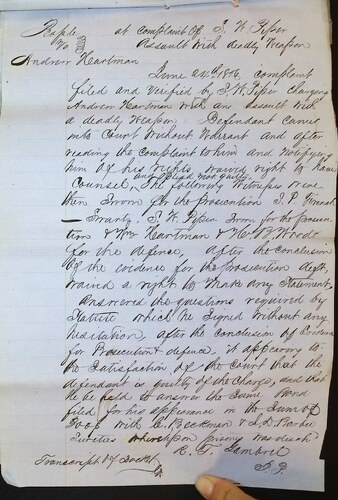 People at complaint of J. W. Piper
vs Assault with deadly Weapon
Andrew Hartman
June 24th 1876 complaint
filed and verified by J. W. Piper charging
Andrew Hartman with an assault with
a deadly Weapon. Defendant came
into Court Without Warrant and after
reading the complaint to him and notifying
him of his rights waived right to have
and plead not guilty
Counsel, The following Witnesses were
then Sworn for the prosecution J. P.
J. W. Piper Sworn for the prosecu
tion & Wm Hartman & H. B. Woods
for the defense, after the conclusion
of the evidence for the prosecution deft,
waived a right to Make Any Statement,
Answered the questions required by
Statute which he Signed Without any
hesitation, after the conclusion of Evidence
for Prosecution & defence, it appearing to
the Satisfaction of the Court that the
defendant is guilty of the Charge, and that
he be held to answer the Same Bond
filed for his appearance in the Sum of
with C. Beckman &
Sureties whereupon prisoner was
Transcript of Docket C. F. Lambert
J. P.